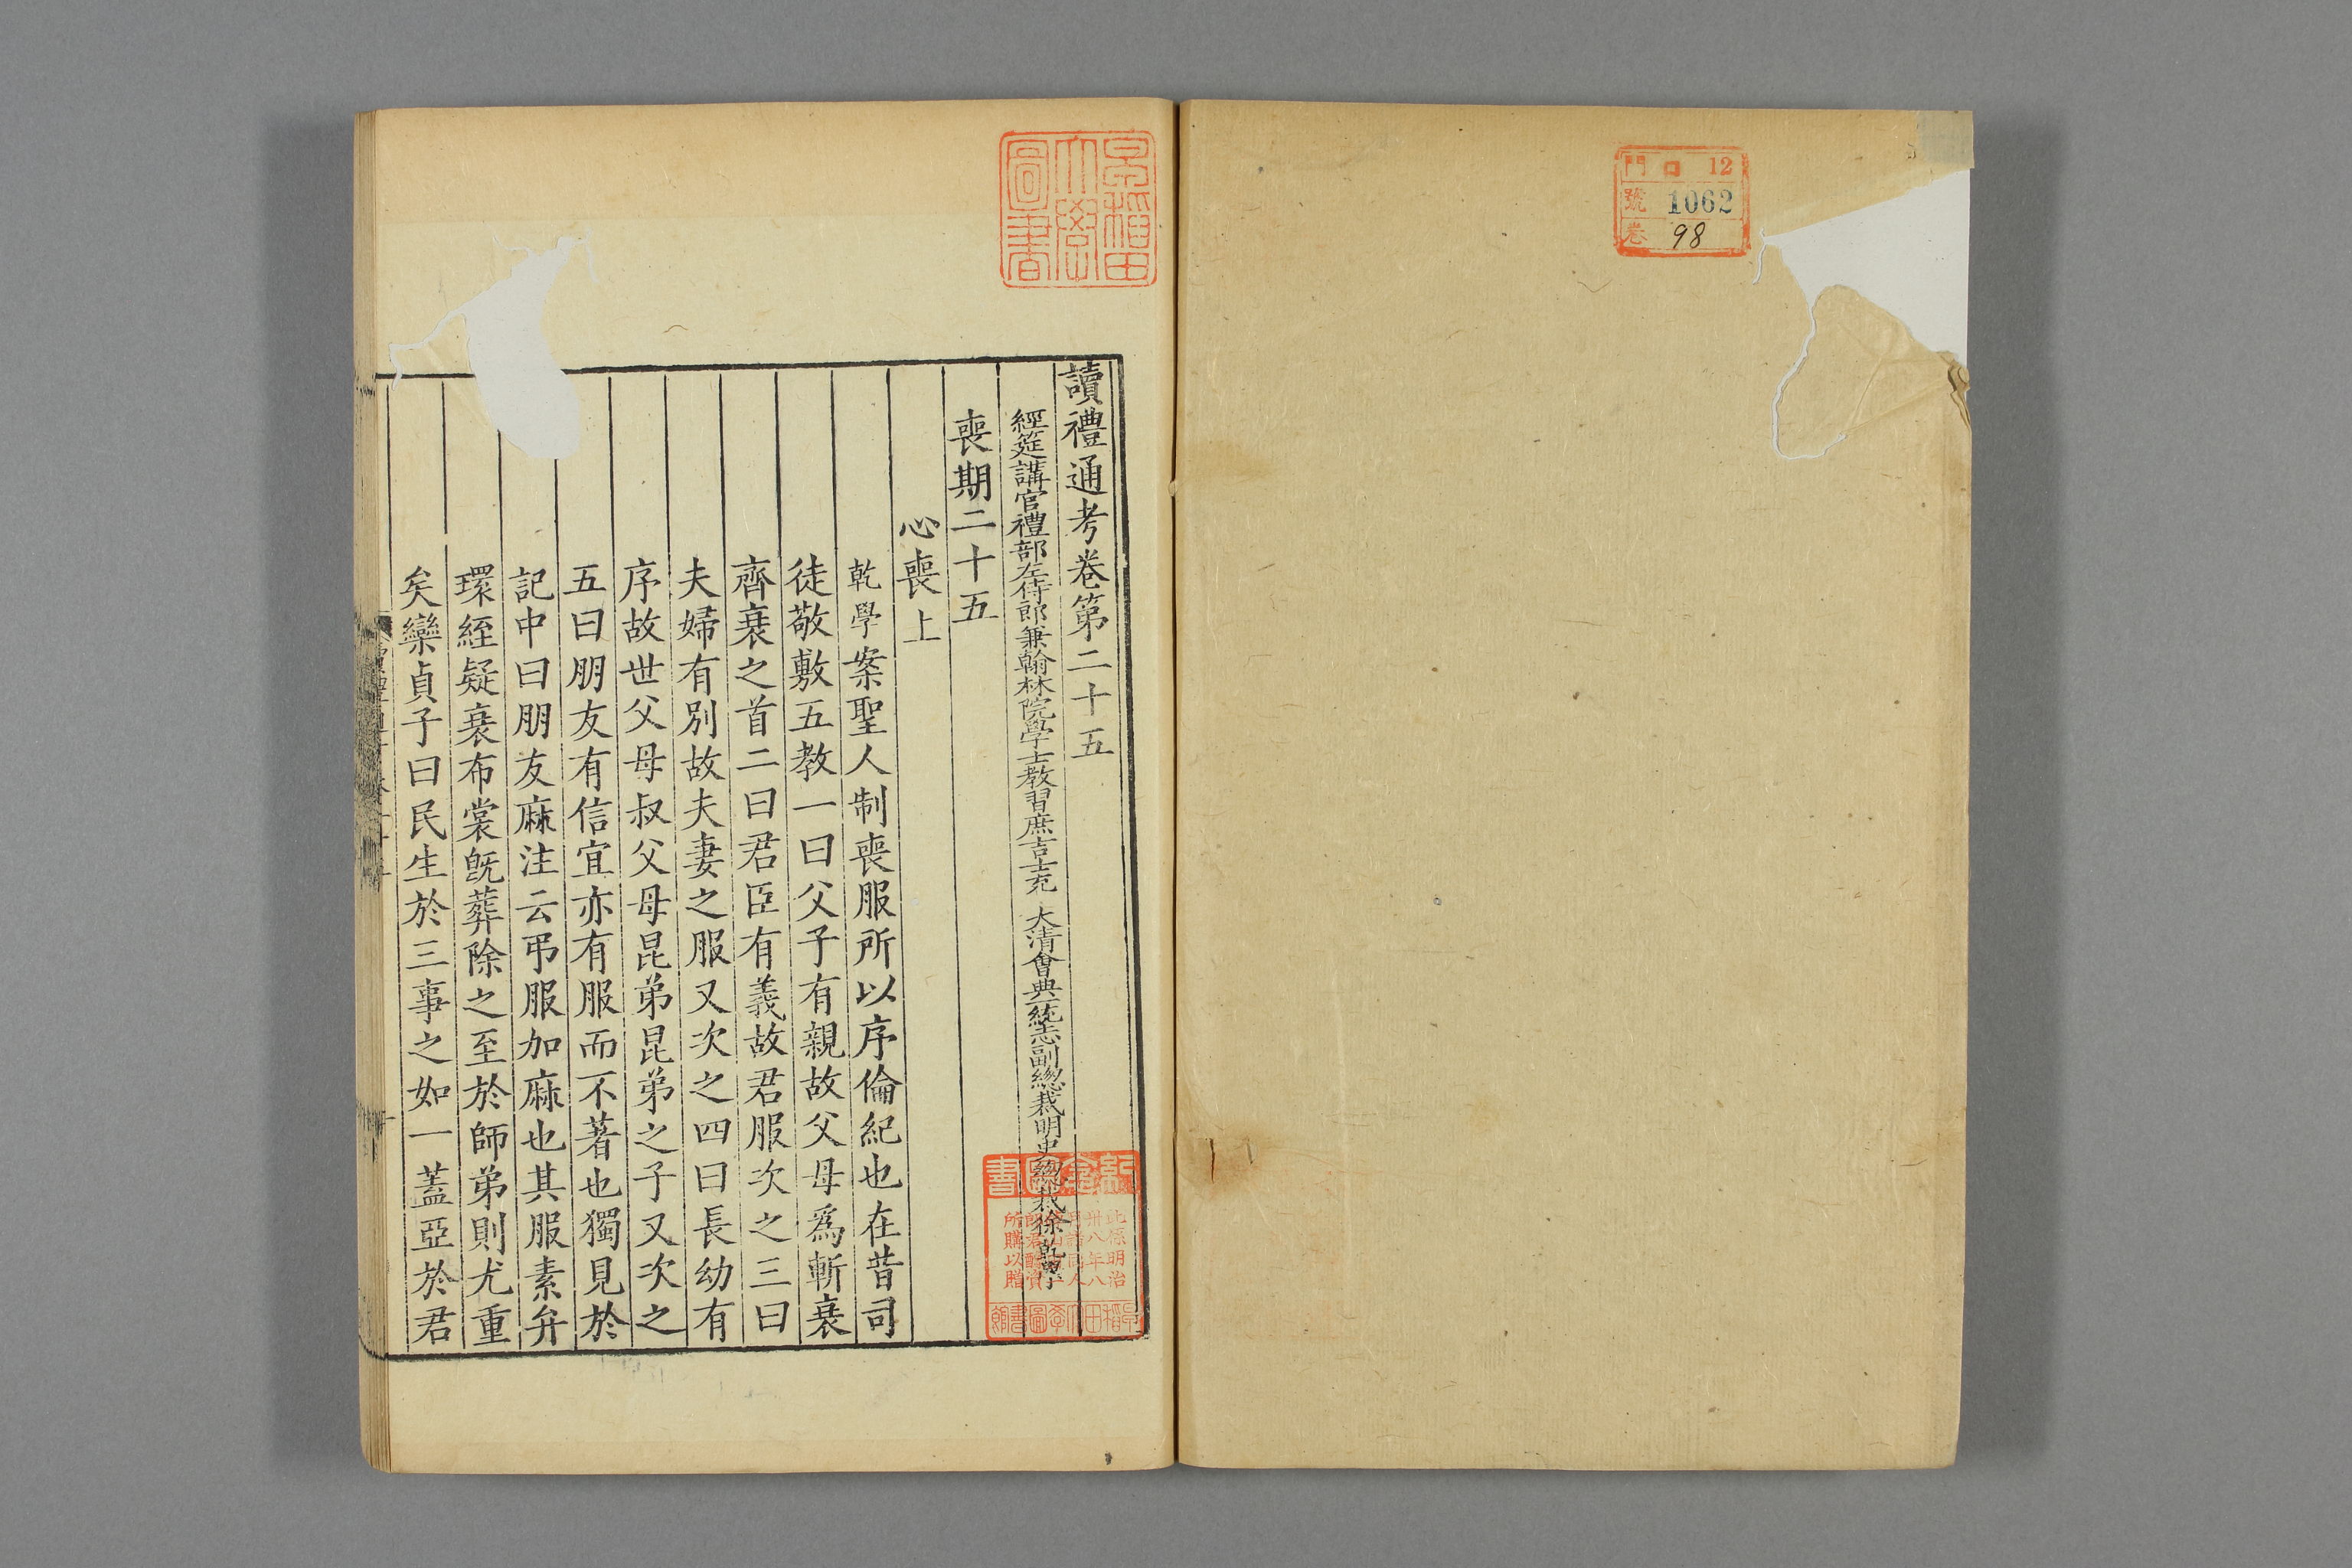 門 口 12
號 1062
卷 98
早稲田
大學
圖書
讀禮通考卷第二十五
經筵講官禮部左侍郎兼翰林院學士教習庶吉士充 大清會典一統志副總裁明史總裁徐乾學
喪期二十五
心喪上
乾學案聖人制喪服所以序倫紀也在昔司
徒敬敷五教一曰父子有親故父母爲斬衰
齊衰之首二曰君臣有義故君服次之三曰
夫婦有別故夫妻之服又次之四曰長幼有
序故世父母叔父母昆弟昆弟之子又次之
五曰朋友有信宜亦有服而不著也獨見於
記中曰朋友麻注云弔服加麻也其服素弁
環絰疑衰布裳旣葬除之至於師弟則尤重
矣欒貞子曰民生於三事之如一蓋亞於君
此係明治
卅八年八
所購以贈
早稲田大學圖書館